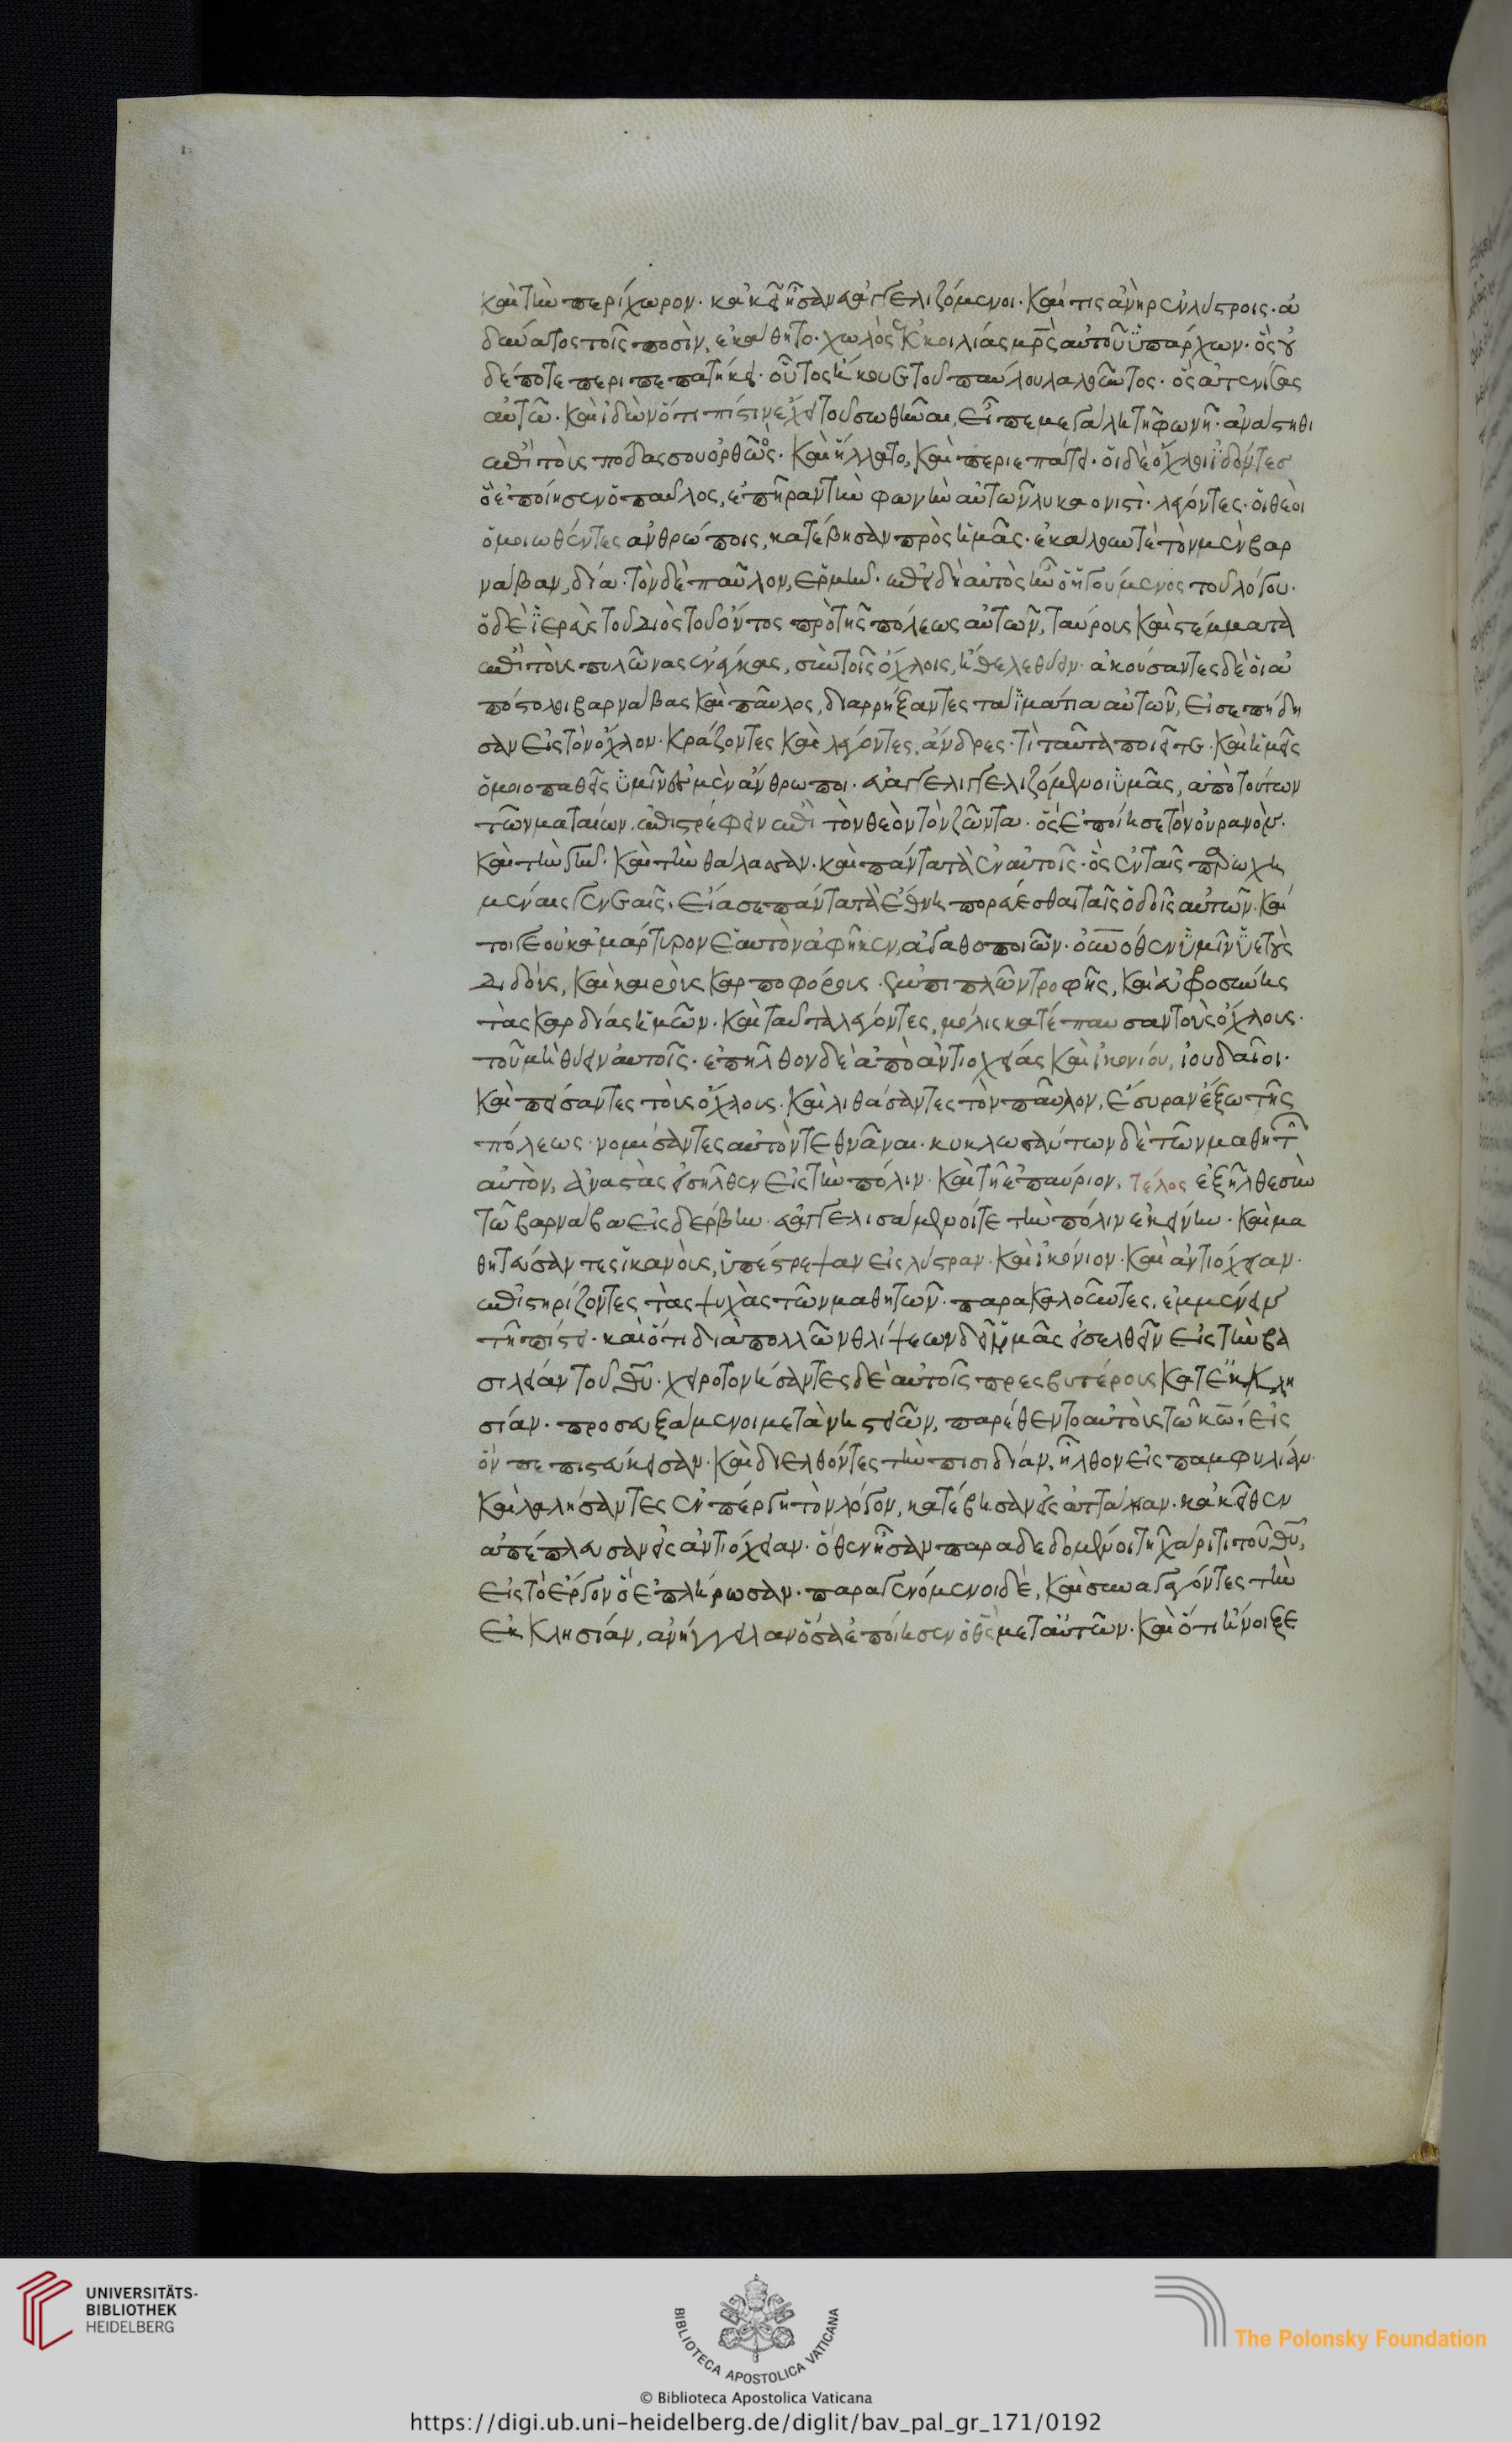 καὶ τὴν περίχωρον· κἀκεῖ ἦσαν εὐαγγελιζόμενοι· καί τις ἀνὴρ ἐν λύστροις· ἀ
δύνατος τοῖς ποσὶν, ἐκάθητο· χωλὸς ἐκ κοιλίας μρ̅ς αὐτοῦ ὑπάρχων· ὃς οὐ
δέποτε περιπεπατήκει· οὗτος ἤκουε τοῦ παύλου λαλοῦντος· ὃς ἀτενίσας
αὐτῶ· καὶ ἰδὼν ὅτι πίστιν ἔχει τοῦ σωθῆναι, εἶπε μεγάλη τῆ φωνῆ· ἀνάστηθι
ἐπὶ τοὺς πόδας σου ὀρθῶς· καὶ ἥλλατο, καὶ περιεπάτει· οἱ δὲ ὄχλοι ἰδόντες
ὃ ἐποίησεν ὁ παῦλος, ἐπῆραν τὴν φωνὴν αὐτῶν λυκαονιστὶ· λέγοντες· οἱ θεοὶ
ὁμοιωθέντες ἀνθρώποις, κατέβησαν πρὸς ἡμᾶς· ἐκάλουν τὲ τὸν μὲν βαρ
νάβαν, δία· τὸν δὲ παῦλον, ἑρμῆν· ἐπειδὴ αὐτὸς ἦν ὁ ἡγούμενος τοῦ λόγου·
ὁ δὲ ἱερεὺς τοῦ διὸς τοῦ ὄντος πρὸ τῆς πόλεως αὐτῶν, ταύρους καὶ στέμματα
ἐπὶ τοὺς πυλῶνας ἐνέγκας, σὺν τοῖς ὄχλοις, ἤθελε θύειν· ἀκούσαντες δὲ οἱ ἀ
πόστολοι βαρνάβας καὶ παῦλος, διαρρήξαντες τὰ ἱμάτια αὐτῶν, εἰσεπήδη
σαν εἰς τὸν ὄχλον· κράζοντες καὶ λέγοντες, ἄνδρες· τί ταῦτα ποιεῖτε· καὶ ἡμεῖς
ὁμοιοπαθεῖς ὑμῖν ἐσμὲν ἄνθρωποι· εὐαγγελιγγελιζόμενοι ὑμᾶς, ἀπὸ τούτων
τῶν ματαίων, ἐπιστρέφειν ἐπὶ τὸν θεὸν τὸν ζῶντα· ὃς ἐποίησε τὸν οὐρανὸν·
καὶ τὴν γῆν· καὶ τὴν θάλασσαν· καὶ πάντα τὰ ἐν αὐτοῖς· ὃς ἐν ταῖς παρωχη
μέναις γενεαῖς, εἴασε πάντα τὰ ἔθνη πορεύεσθαι ταῖς ὁδοῖς αὐτῶν· καί
τοιγε οὐκ ἀμάρτυρον ἑαυτὸν ἀφῆκεν, ἀγαθοποιῶν· οὐνοθεν ὑμῖν ὑετοὺς
διδοὺς, καὶ καιροὺς καρποφόρους· ἐμπιπλῶν τροφῆς, καὶ εὐφροσύνης
τὰς καρδίας ἡμῶν· καὶ ταῦτα λέγοντες, μόλις κατέπαυσαν τοὺς ὄχλους·
τοῦ μὴ θύειν αὐτοῖς· ἐπῆλθον δὲ ἀπὸ ἀντιοχείας καὶ ἰκονίου, ἰουδαῖοι·
καὶ πείσαντες τοὺς ὄχλους· καὶ λιθάσαντες τὸν παῦλον, ἔσυραν ἔξω τῆς
πόλεως· νομίσαντες αὐτὸν τεθνᾶναι· κυκλωσάντων δὲ τῶν μαθητῶν
αὐτὸν, ἀναστὰς εἰσῆλθεν εἰς τὴν πόλιν· καὶ τῆ ἐπαύριον, τέλος ἐξῆλθε σὺν
τῶ βαρνάβα εἰς δέρβην· εὐαγγελισάμενοί τε τὴν πόλιν ἐκείνην· καὶ μα
θητεύσαντες ἱκανοὺς, ὑπέστρεψαν εἰς λύστραν· καὶ ἰκόνιον· καὶ ἀντιόχειαν·
ἐπιστηρίζοντες τὰς ψυχὰς τῶν μαθητῶν· παρακαλοῦντες, ἐμμένειν
τῆ πίστει· καὶ ὅτι διὰ πολλῶν θλίψεων δεῖ ἡμᾶς εἰσελθεῖν εἰς τὴν βα
σιλείαν τοῦ θυ̅· χειροτονήσαντες δὲ αὐτοῖς πρεσβυτέρους κατ' ἐκκλη
σίαν· προσευξάμενοι μετὰ νηστειῶν, παρέθεντο αὐτοὺς τῶ κω̅, εἰς
ὃν πεπιστεύκεισαν· καὶ διελθόντες τὴν πισιδίαν, ἦλθον εἰς παμφυλίαν·
καὶ λαλήσαντες ἐν πέργη τὸν λόγον, κατέβησαν εἰς ἀτταλίαν· κἀκεῖθεν
ἀπέπλευσαν εἰς ἀντιόχειαν· ὅθεν ἦσαν παραδεδομένοι τῆ χάριτι τοῦ θυ̅,
εἰς τὸ ἔργον ὃ ἐπλήρωσαν· παραγενόμενοι δὲ, καὶ συναγαγόντες τὴν
ἐκκλησίαν, ἀνήγγειλαν ὅσα ἐποίησεν ὁ θς̅ μετ' αὐτῶν· καὶ ὅτι ἤνοιξε
UNIVERSITÄTS-
BIBLIOTHEK
HEIDELBERG
BIBLIOTECA APOSTOLICA VATICANA
The Polonsky Foundation
© Biblioteca Apostolica Vaticana
https://digi.ub.uni-heidelberg.de/diglit/bav_pal_gr_171/0192